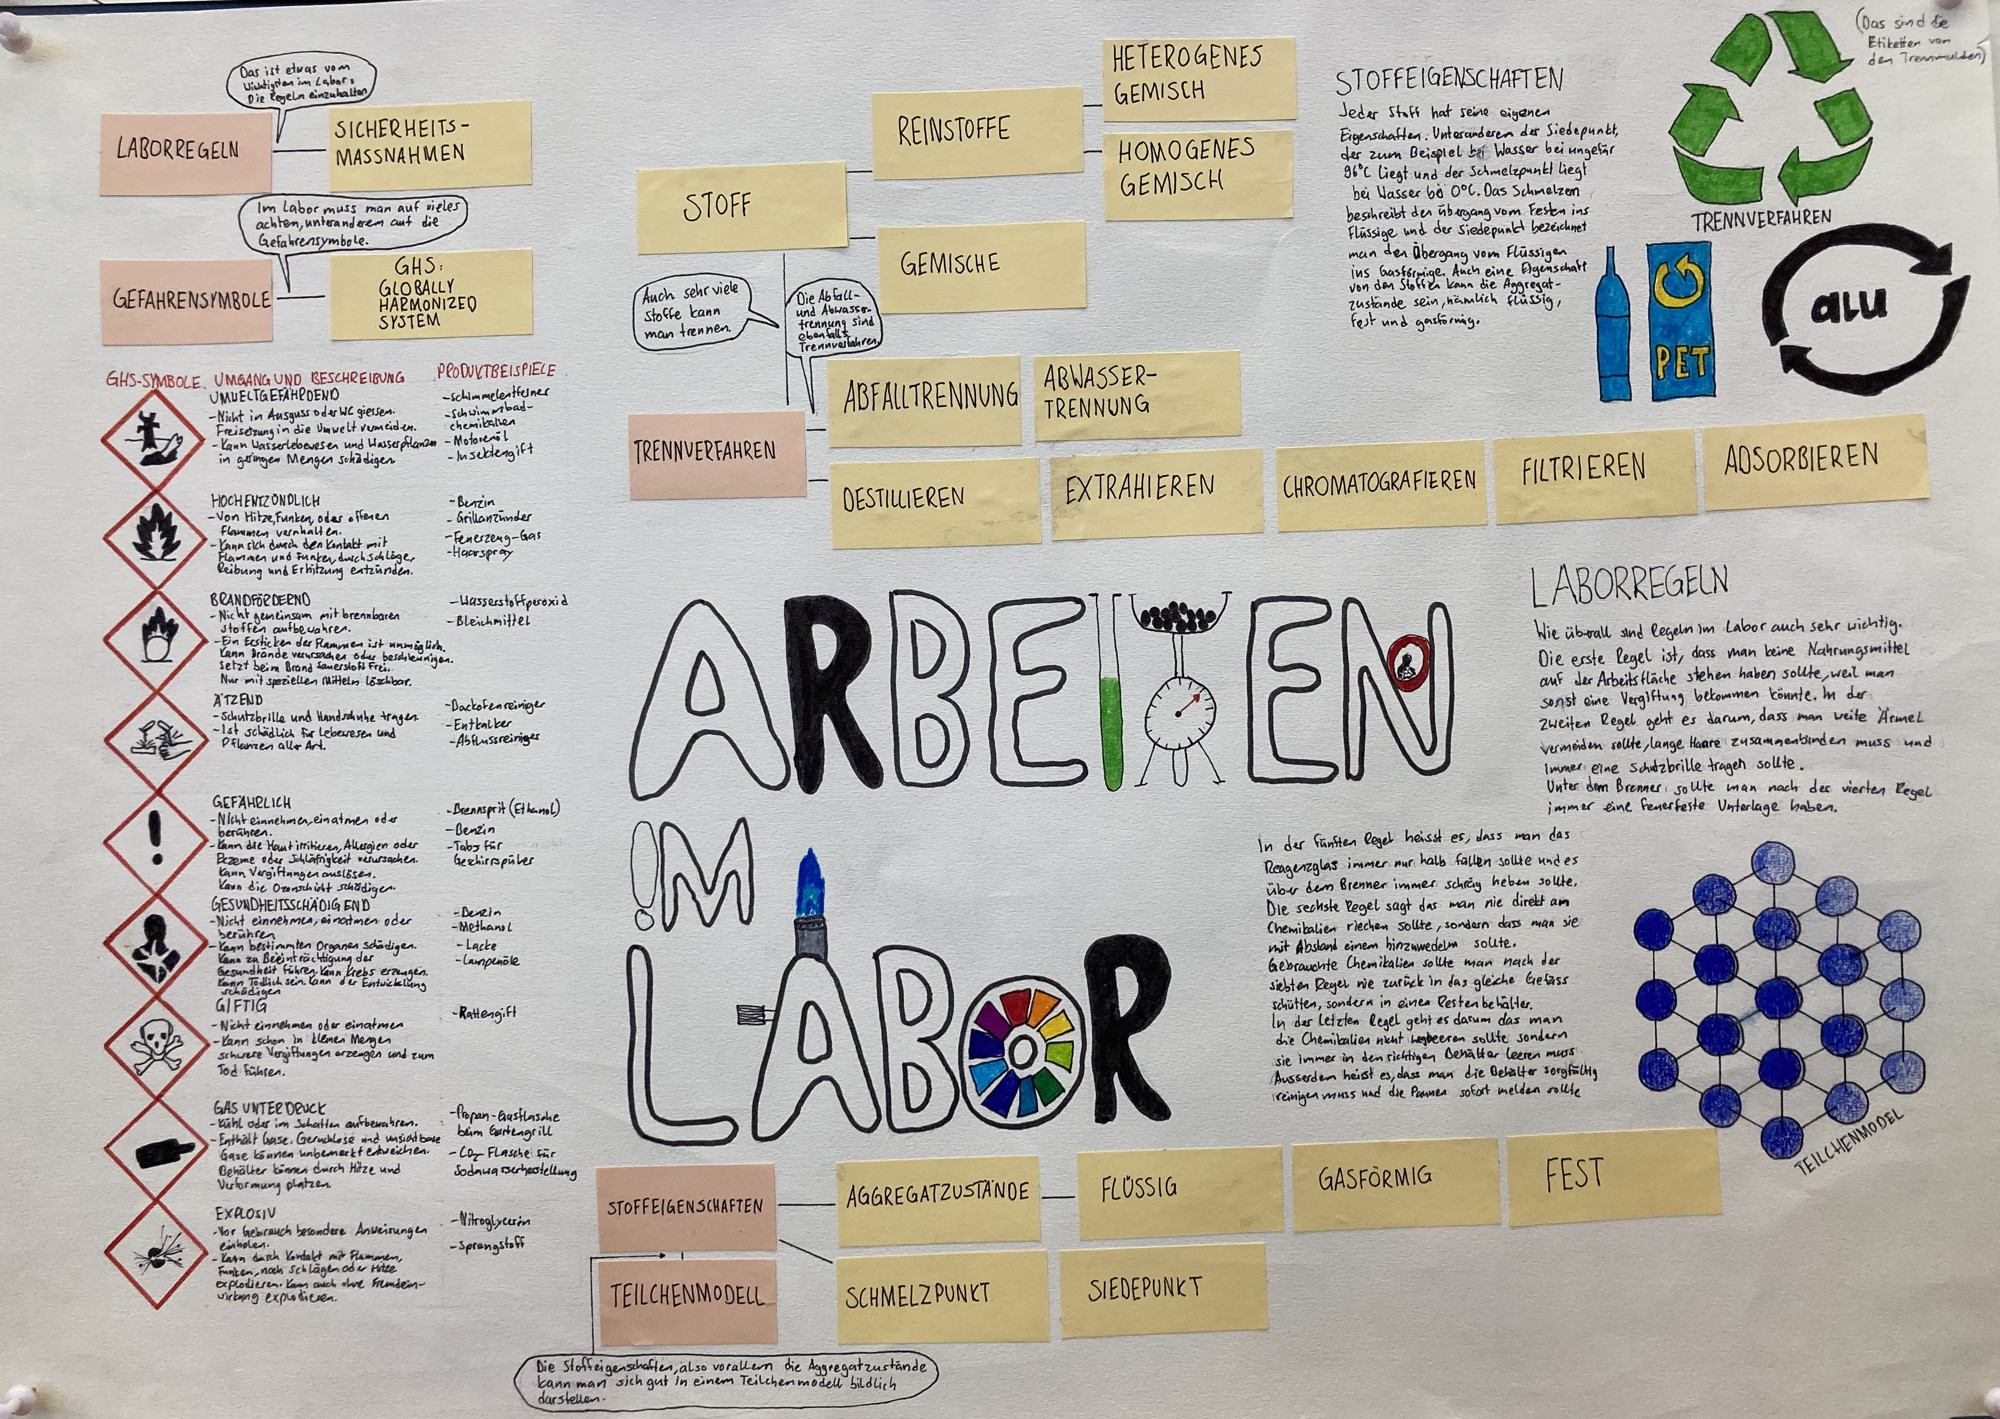 Das ist etwas vom
Wichtigsten im Labor:
Die Regeln einzuhalten
LABORREGELN
SICHERHEITS-
MASSNAHMEN
Im Labor muss man auf vieles
achten, unteranderem auf die
Gefahrensymbole.
GEFAHRENSYMBOLE
GHS:
GLOBALLY
HARMONIZED
SYSTEM
STOFF
REINSTOFFE
GEMISCHE
HETEROGENES
GEMISCH
HOMOGENES
GEMISCH
Auch sehr viele
Stoffe kann
man trennen.
Die Abfall-
und Abwasser-
trennung sind
ebenfalls
Trennverfahren.
TRENNVERFAHREN
ABFALLTRENNUNG
ABWASSER-
TRENNUNG
DESTILLIEREN
EXTRAHIEREN
CHROMATOGRAFIEREN
FILTRIEREN
ADSORBIEREN
STOFFEIGENSCHAFTEN
Jeder Stoff hat seine eigenen
Eigenschaften. Unteranderem der Siedepunkt,
der zum Beispiel bei Wasser bei ungefär
96°C liegt und der Schmelzpunkt liegt
bei Wasser bei 0°C. Das Schmelzen
beschreibt den übergang vom Festen ins
Flüssige und der Siedepunkt bezeichnet
man den Übergang vom Flüssigen
ins Gasförmige. Auch eine Eigenschaft
von den Stoffen kann die Aggregat-
zustände sein, nämlich flüssig,
fest und gasförmig.
(Das sind die
Etiketten von
den Trennmulden)
TRENNVERFAHREN
PET
alu
GHS-SYMBOLE UMGANG UND BESCHREIBUNG PRODUKTBEISPIELE
UMWELTGEFÄHRDEND
- Nicht in Ausguss oder WC giessen.
Freisetzung in die Umwelt vermeiden.
- Kann Wasserlebewesen und Wasserpflanzen
in geringen Mengen schädigen
- Schimmelentferner
- Schwimmbad-
chemikalien
- Motorenöl
- Insektengift
HOCHENTZÜNDLICH
- Von Hitze, Funken, oder offenen
Flammen vernhalten.
- Kann sich durch den Kontakt mit
Flammen und Funken, durch Schläge,
Reibung und Erhitzung entzünden.
- Benzin
- Grillanzünder
- Feuerzeug-Gas
- Haarspray
BRANDFÖRDERND
- Nicht gemeinsam mit brennbaren
Stoffen aufbewahren.
- Ein Ersticken der Flammen ist unmöglich.
Kann Brände verursachen oder beschleunigen.
Setzt beim Brand Sauerstoff frei.
Nur mit speziellen Mitteln löschbar.
- Wasserstoffperoxid
- Bleichmittel
ÄTZEND
- Schutzbrille und Handschuhe tragen.
- Ist schädlich für Lebewesen und
Pflanzen aller Art.
- Backofenreiniger
- Entkalker
- Abflussreiniger
GEFÄHRLICH
- Nicht einnehmen, einatmen oder
berühren.
- Kann die Haut irritieren, Allergien oder
Ekzeme oder Schläfrigkeit verursachen.
Kann Vergiftungen auslösen.
Kann die Ozonschicht schädigen.
- Brennsprit (Ethanol)
- Benzin
- Tabs für
Geschirrspüler
GESUNDHEITSSCHÄDIGEND
- Nicht einnehmen, einatmen oder
berühren
- Kann bestimmten Organen schädigen.
Kann zu Beeinträchtigung der
Gesundheit führen. Kann Krebs erzeugen.
Kann Tödlich sein. Kann der Entwicklung
schädigen
- Benzin
- Methanol
- Lacke
- Lampenöle
GIFTIG
- Nicht einnehmen oder einatmen
- Kann schon in kleinen Mengen
schwere Vergiftungen erzeugen und zum
Tod führen.
- Rattengift
GAS UNTER DRUCK
- Kühl oder im Schatten aufbewahren.
- Enthält Gase. Geruchlose und unsichtbare
Gase können unbemerkt entweichen.
Behälter können durch Hitze und
Verformung platzen.
- Propan-Gasflasche
beim Gartengrill
- CO2 Flasche für
Sodawasserherstellung
EXPLOSIV
- Vor Gebrauch besondere Anweisungen
einholen.
- Kann durch Kontakt mit Flammen,
Funken, nach Schlägen oder Hitze
explodieren. Kann auch ohne Fremdein-
wirkung explodieren.
- Nitroglycerin
- Sprengstoff
ARBEITEN
IM
LABOR
LABORREGELN
Wie überall sind Regeln im Labor auch sehr wichtig.
Die erste Regel ist, dass man keine Nahrungsmittel
auf der Arbeitsfläche stehen haben sollte, weil man
sonst eine Vergiftung bekommen könnte. In der
zweiten Regel geht es darum, dass man weite Ärmel
vermeiden sollte, lange Haare zusammenbinden muss und
immer eine Schutzbrille tragen sollte.
Unter dem Brenner sollte man nach der vierten Regel
immer eine feuerfeste Unterlage haben.
In der fünften Regel heisst es, dass man das
Reagenzglas immer nur halb füllen sollte und es
über dem Brenner immer schräg heben sollte.
Die sechste Regel sagt das man nie direkt am
Chemikalien riechen sollte, sondern dass man sie
mit Abstand einem hinzuwedeln sollte.
Gebrauchte Chemikalien sollte man nach der
siebten Regel nie zurück in das gleiche Gefäss
schütten, sondern in einen Restenbehälter.
In der letzten Regel geht es darum das man
die Chemikalien nicht wegleeren sollte sondern
sie immer in den richtigen Behälter leeren muss
Ausserdem heist es, dass man die Behälter sorgfältig
reinigen muss und die Pannen sofort melden sollte
TEILCHENMODEL
STOFFEIGENSCHAFTEN
AGGREGATZUSTÄNDE
FLÜSSIG
GASFÖRMIG
FEST
TEILCHENMODELL
SCHMELZPUNKT
SIEDEPUNKT
Die Stoffeigenschaften, also vorallem die Aggregatzustände
kann man sich gut in einem Teilchenmodell bildlich
darstellen.